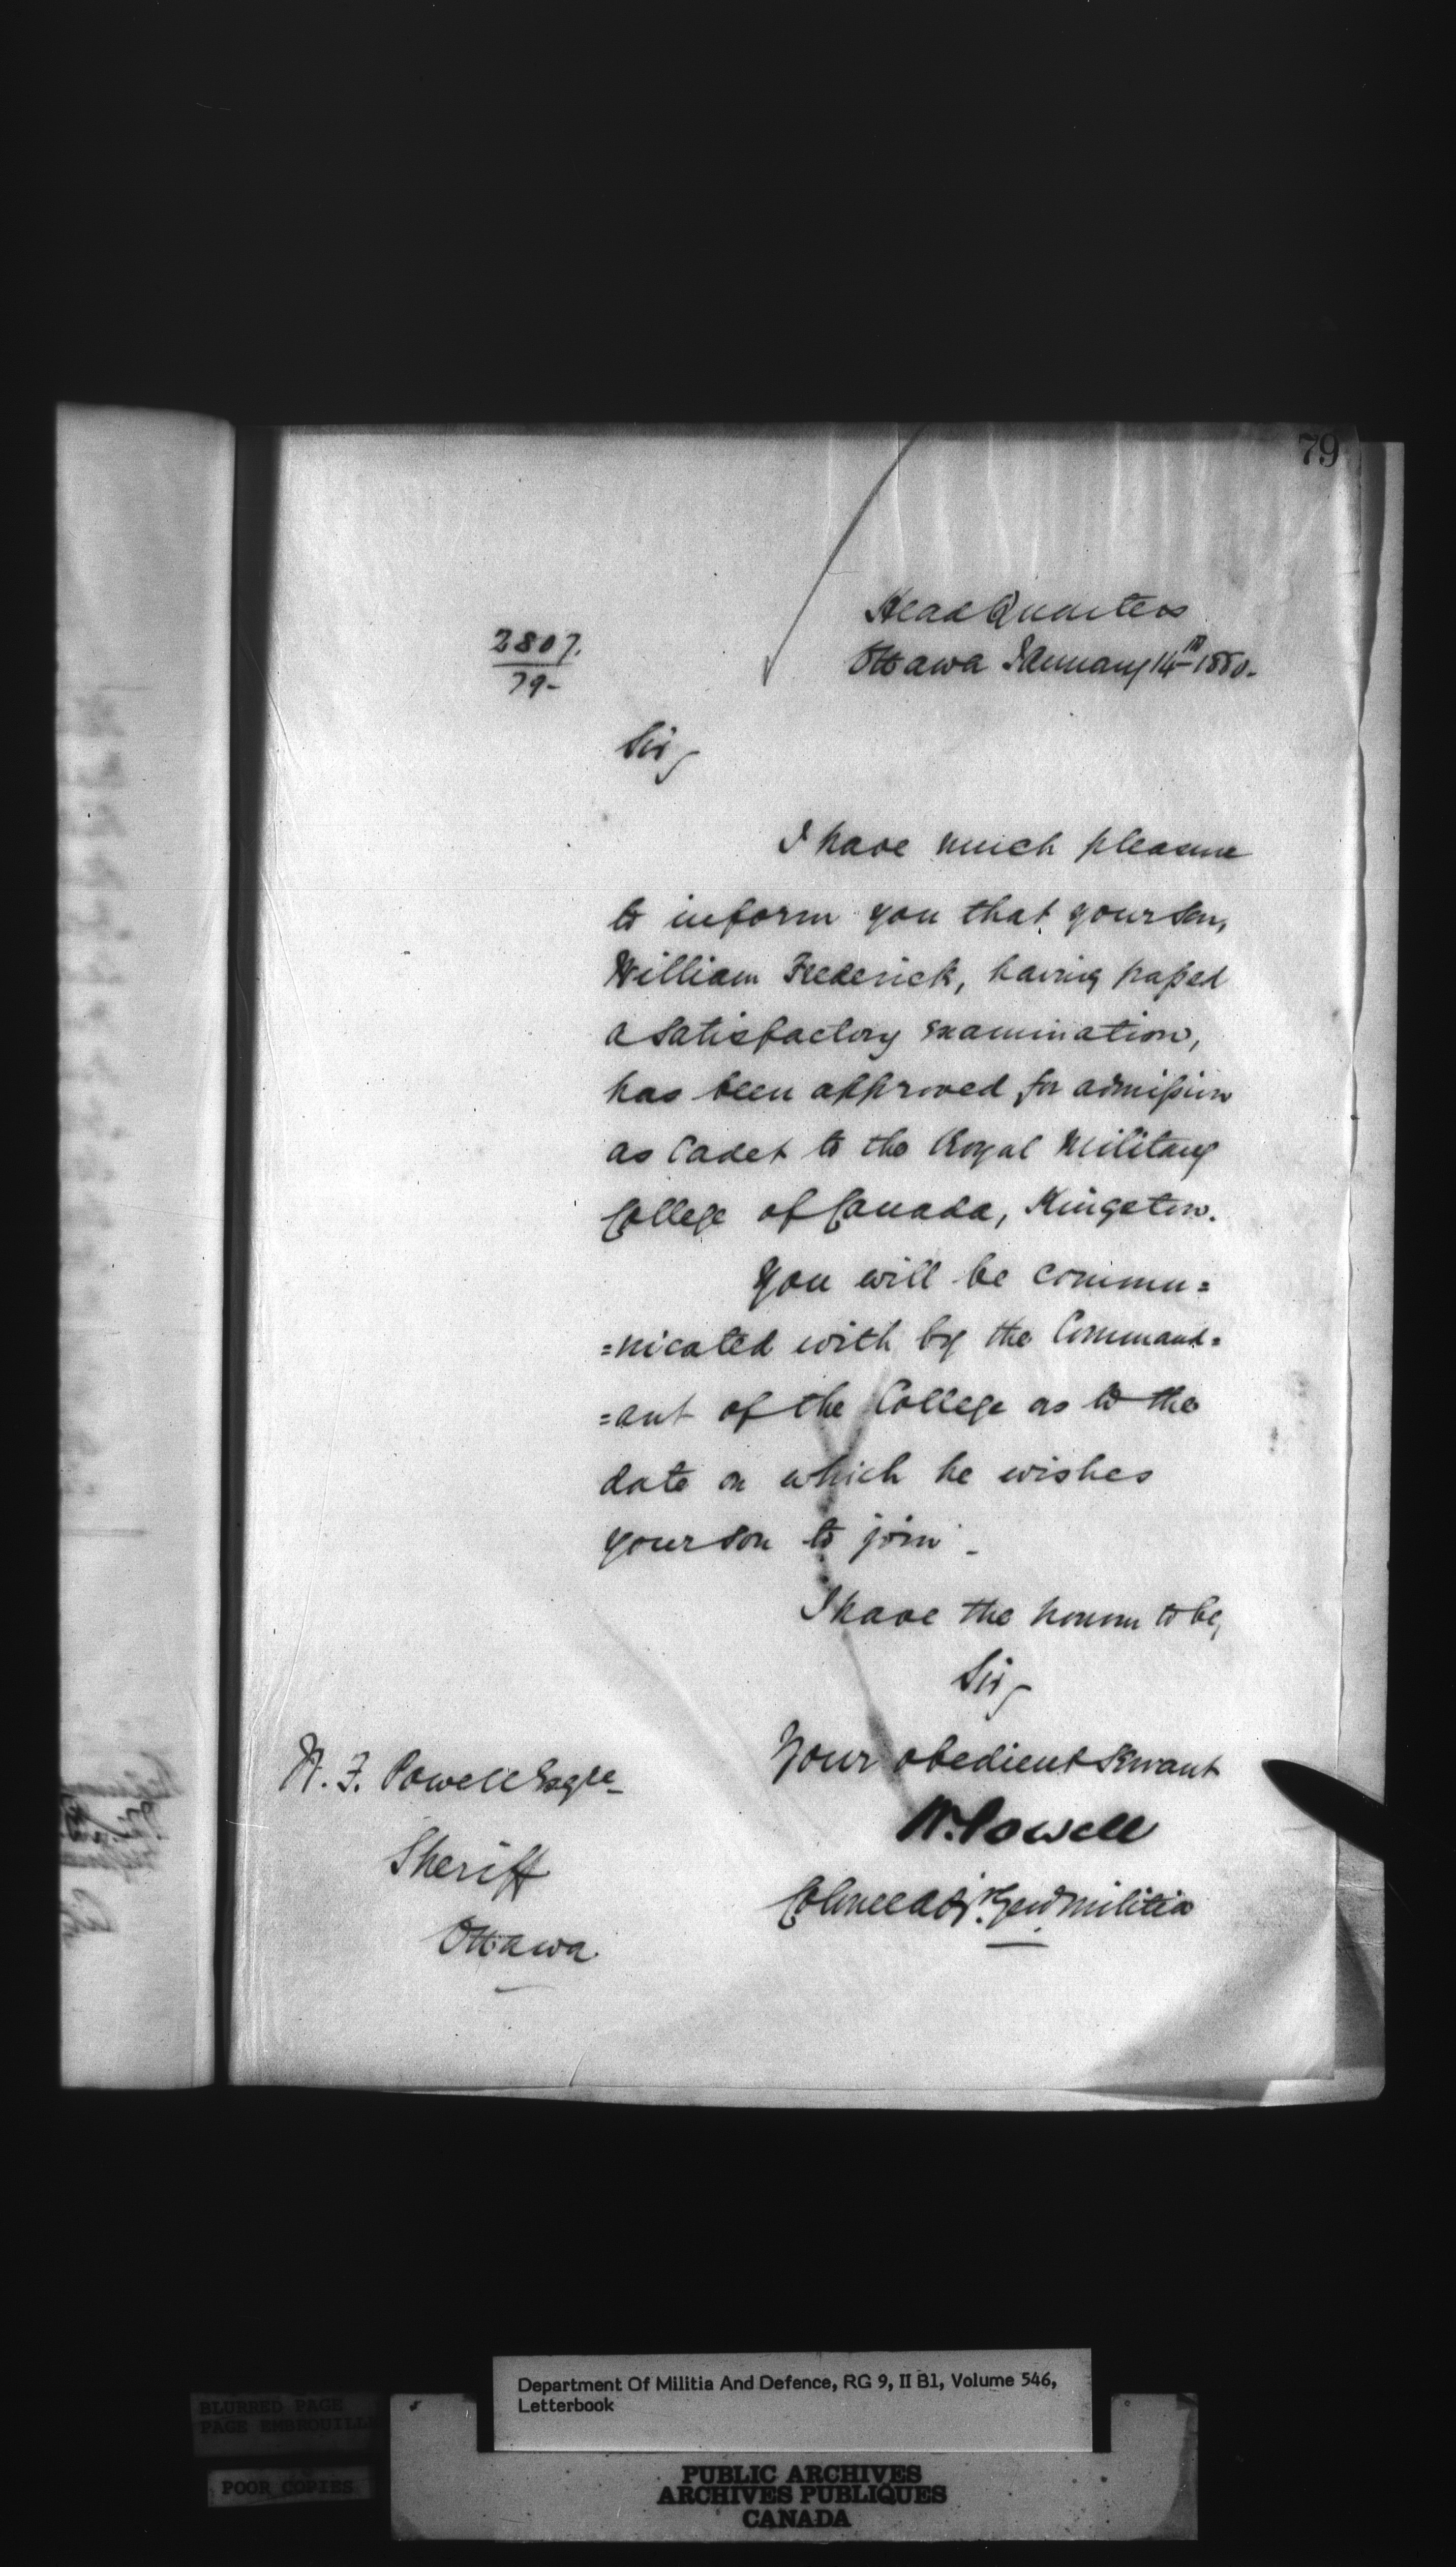 79
Head Quarters
Ottawa January 14th 1880.
2807.
79-
Sir,
I have much pleasure
to inform you that your son,
William Frederick, having passed
a satisfactory examination,
has been approved for admission
as Cadet to the Royal Military
College of Canada, Kingston.
You will be commu=
=nicated with by the Command=
=ant of the College as to the
date on which he wishes
your son to join -
I have the honour to be,
Sir,
Your obedient Servant
W. Powell
Colonel Adjt. Genl Militia
W. F. Powell Esqre
Sheriff
Ottawa.
Department Of Militia And Defence, RG 9, II B1, Volume 546,
Letterbook
BLURRED PAGE
PAGE EMBROUILLE
POOR COPIES
PUBLIC ARCHIVES
ARCHIVES PUBLIQUES
CANADA